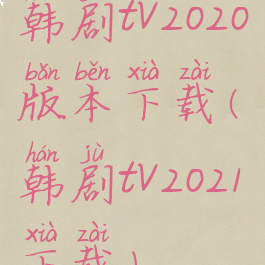 韩剧tv2020
bǎn běn xià zài
版本下载(
hán jù
韩剧tv2021
xià zài
下载)